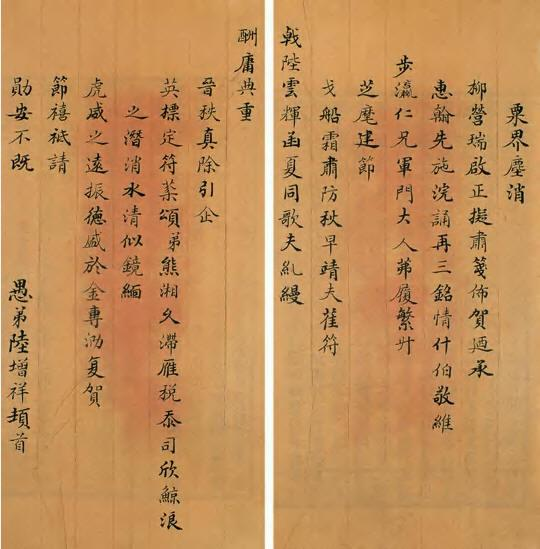 栗界塵消
柳營瑞啟正擬肅箋佈賀廼承
惠翰先施浣誦再三銘情什伯敬維
步瀛仁兄軍門大人茀履繁升
芝麾建節
戈船霜肅防秋早靖夫萑符
戟陛雲輝函夏同歌夫糺縵
酬庸典重
晉秩真除引企
英標定符葉頌弟熊湘久滯雁稅忝司欣鯨浪
之潛消水清似鏡緬
虎威之遠振德威於金專泐复賀
節禧祗請
勛安不既
愚弟陸增祥頓首